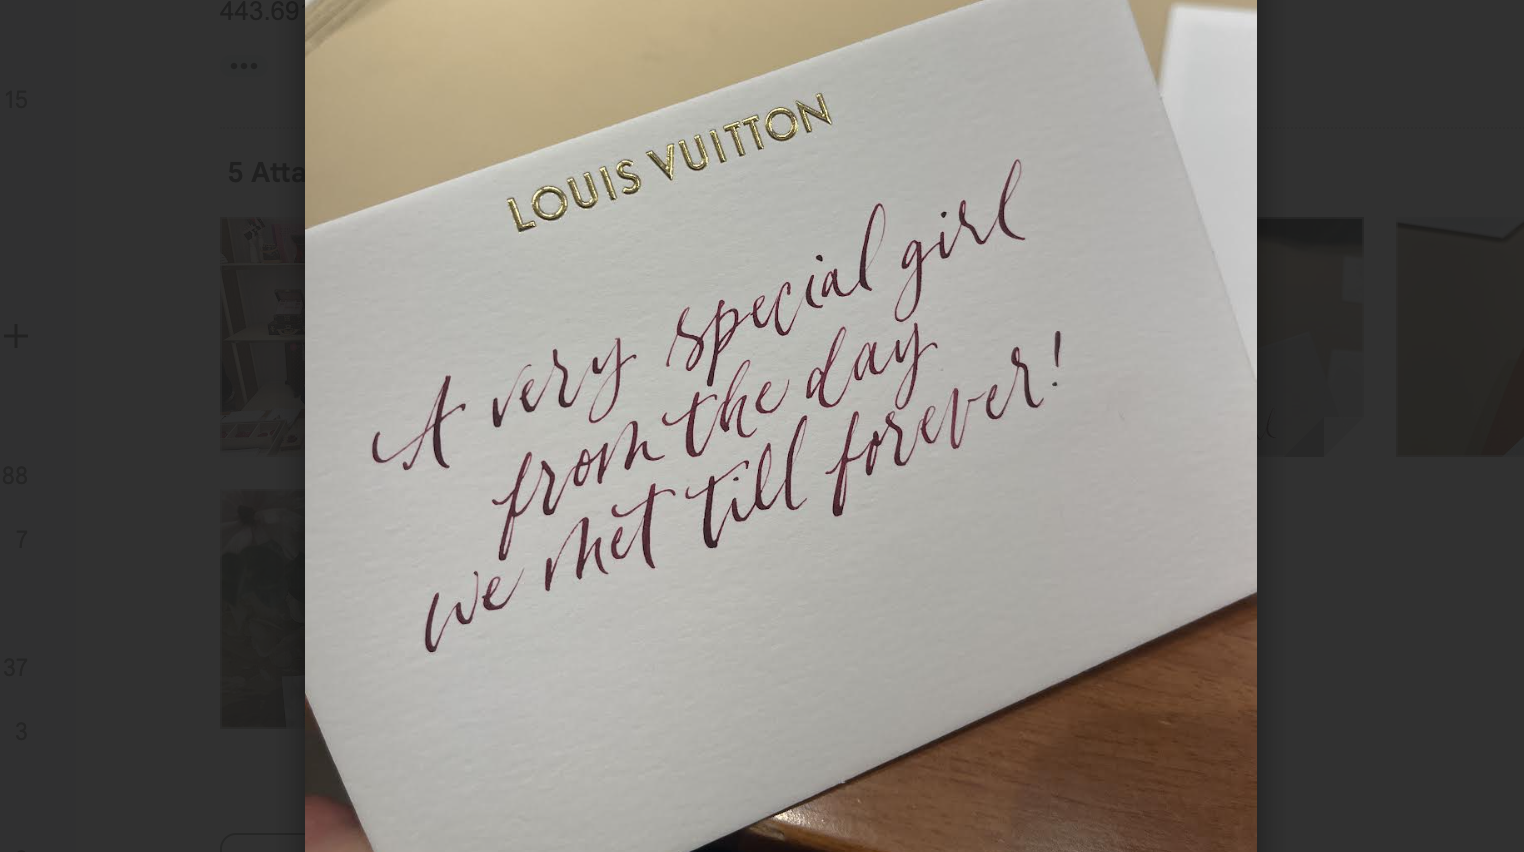 443.69
...
15
5 Atta
LOUIS VUITTON
A very special girl
from the day
we met till forever!
88
7
37
3